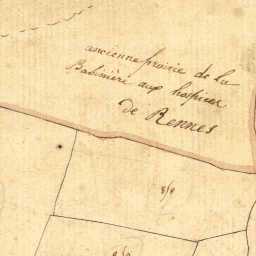 ancienne prairie de la
Babinière aux hospices
de Rennes